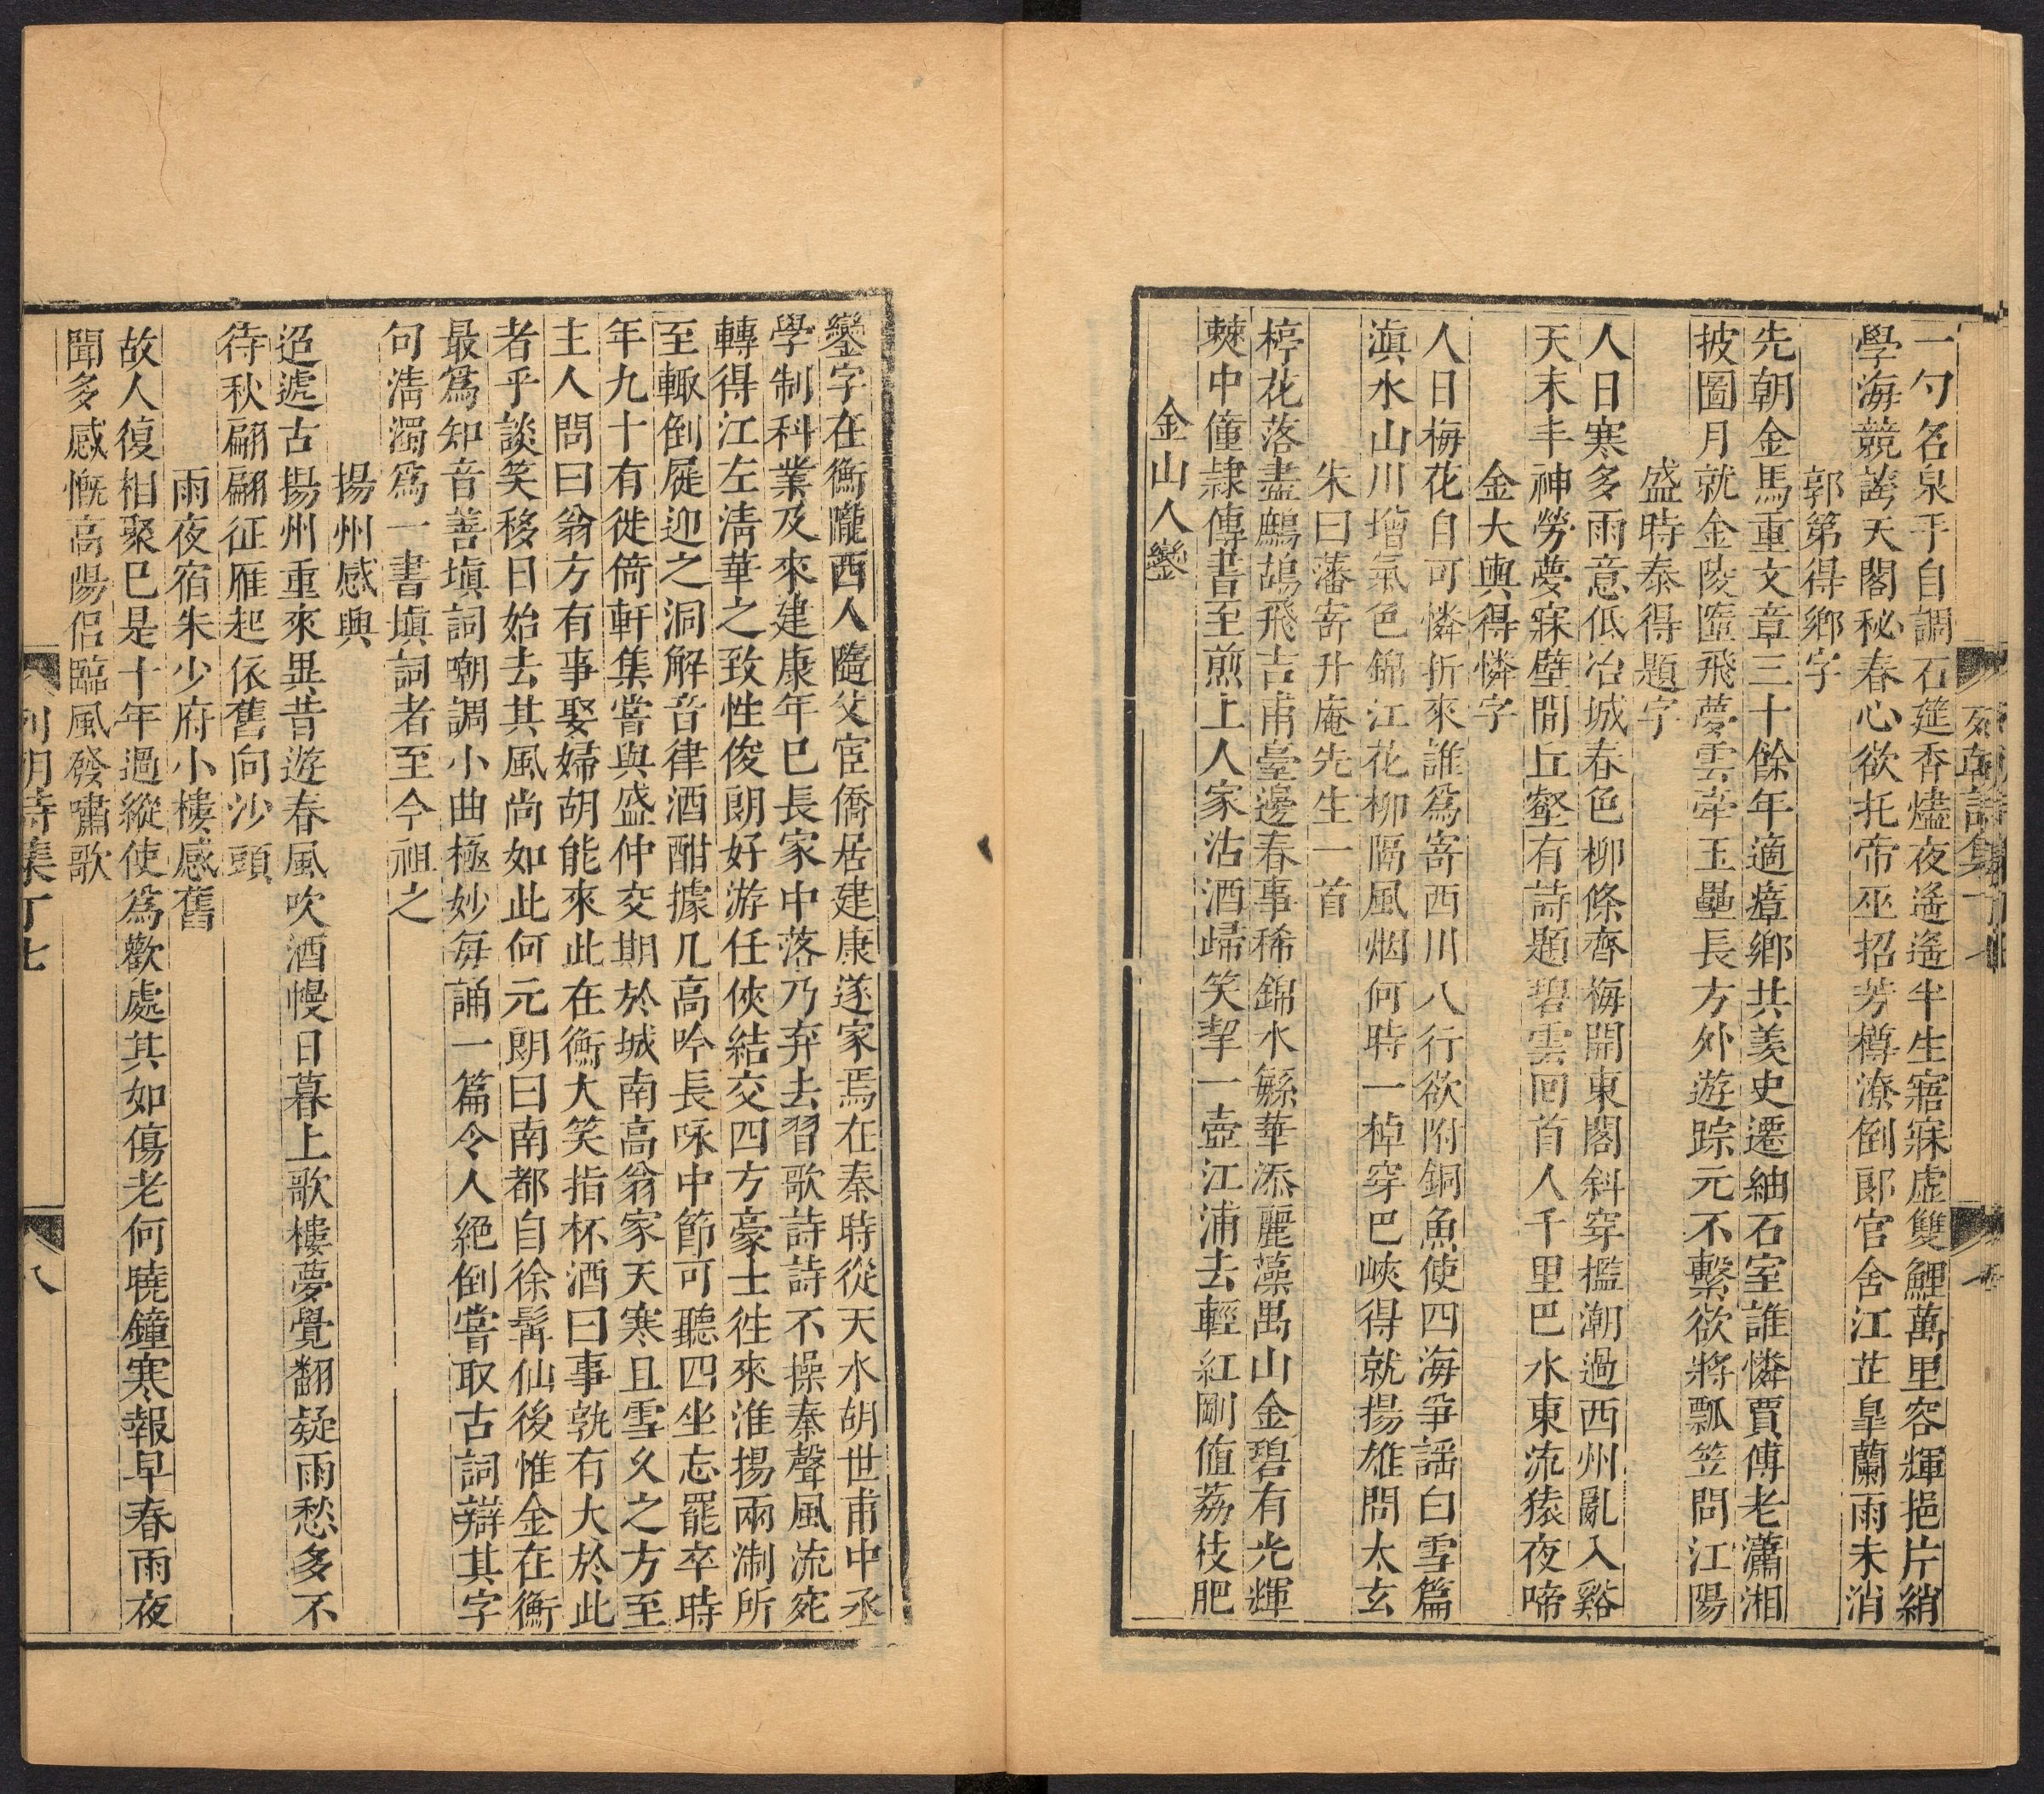 一勺名泉手自調石筵香燼夜遙遙半生寤寐虛雙鯉萬里容輝挹片綃
學海競誇天閣秘春心欲托帝巫招芳樽潦倒郎官舍江芷皐蘭雨未消
郭第得鄉字
先朝金馬重文章三十餘年適瘴鄉共羨史遷紬石室誰憐賈傅老瀟湘
披圖月就金陵匯飛夢雲牽玉壘長方外遊踪元不繫欲將瓢笠問江陽
盛時泰得題字
人日寒多雨意低冶城春色柳條齊梅開東閣斜穿檻潮過西州亂入谿
天末丰神勞夢寐壁間丘壑有詩題碧雲回首人千里巴水東流猿夜啼
金大輿得憐字
人日梅花自可憐折來誰爲寄西川八行欲附銅魚使四海爭謡白雪篇
滇水山川增氣色錦江花柳隔風烟何時一棹穿巴峽得就揚雄問太玄
朱曰藩寄升庵先生一首
椁花落盡鷓鴣飛吉甫臺邊春事稀錦水繇華添麗藻禺山金碧有光輝
僰中僮隷傳書至煎上人家沽酒歸笑挈一壺江浦去輕紅剛値荔枝肥
金山人鑾
鑾字在衡隴西人隨父宦僑居建康遂家焉在秦時從天水胡世甫中丞
學制科業及來建康年已長家中落乃弃去習歌詩詩不操秦聲風流宛
轉得江左淸華之致性俊朗好游任俠結交四方豪士徃來淮揚兩淛所
至輙倒屣迎之洞解音律酒酣據几高吟長咏中節可聽四坐忘罷卒時
年九十有徙倚軒集嘗與盛仲交期於城南高翁家天寒且雪久之方至
主人問曰翁方有事娶婦胡能來此在衡大笑指杯酒曰事孰有大於此
者乎談笑移日始去其風尚如此何元朗曰南都自徐髯仙後惟金在衡
最爲知音善塡詞嘲調小曲極妙每誦一篇令人絕倒嘗取古詞辯其字
句淸濁爲一書塡詞者至今祖之
揚州感興
迢遞古揚州重來異昔遊春風吹酒幔日暮上歌樓夢覺翻疑雨愁多不
待秋翩翩征雁起依舊向沙頭
雨夜宿朱少府小樓感舊
故人復相聚已是十年過縱使爲歡處其如傷老何曉鐘寒報早春雨夜
聞多感慨高陽侶臨風發嘯歌
列朝詩集丁七
八